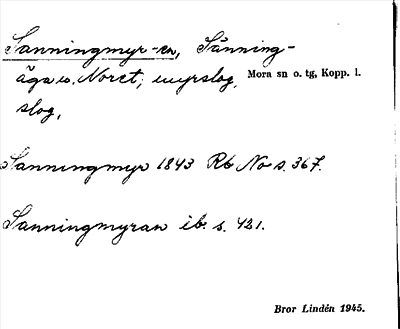 Sanningmyr -en, Sånning-
äga w. Noret; myrslog, Mora sn o. tg, Kopp. l.
slog,
Sanningmyr 1843 Rb No s. 367.
Sanningmyran ib. s. 421.
Bror Lindén 1945.